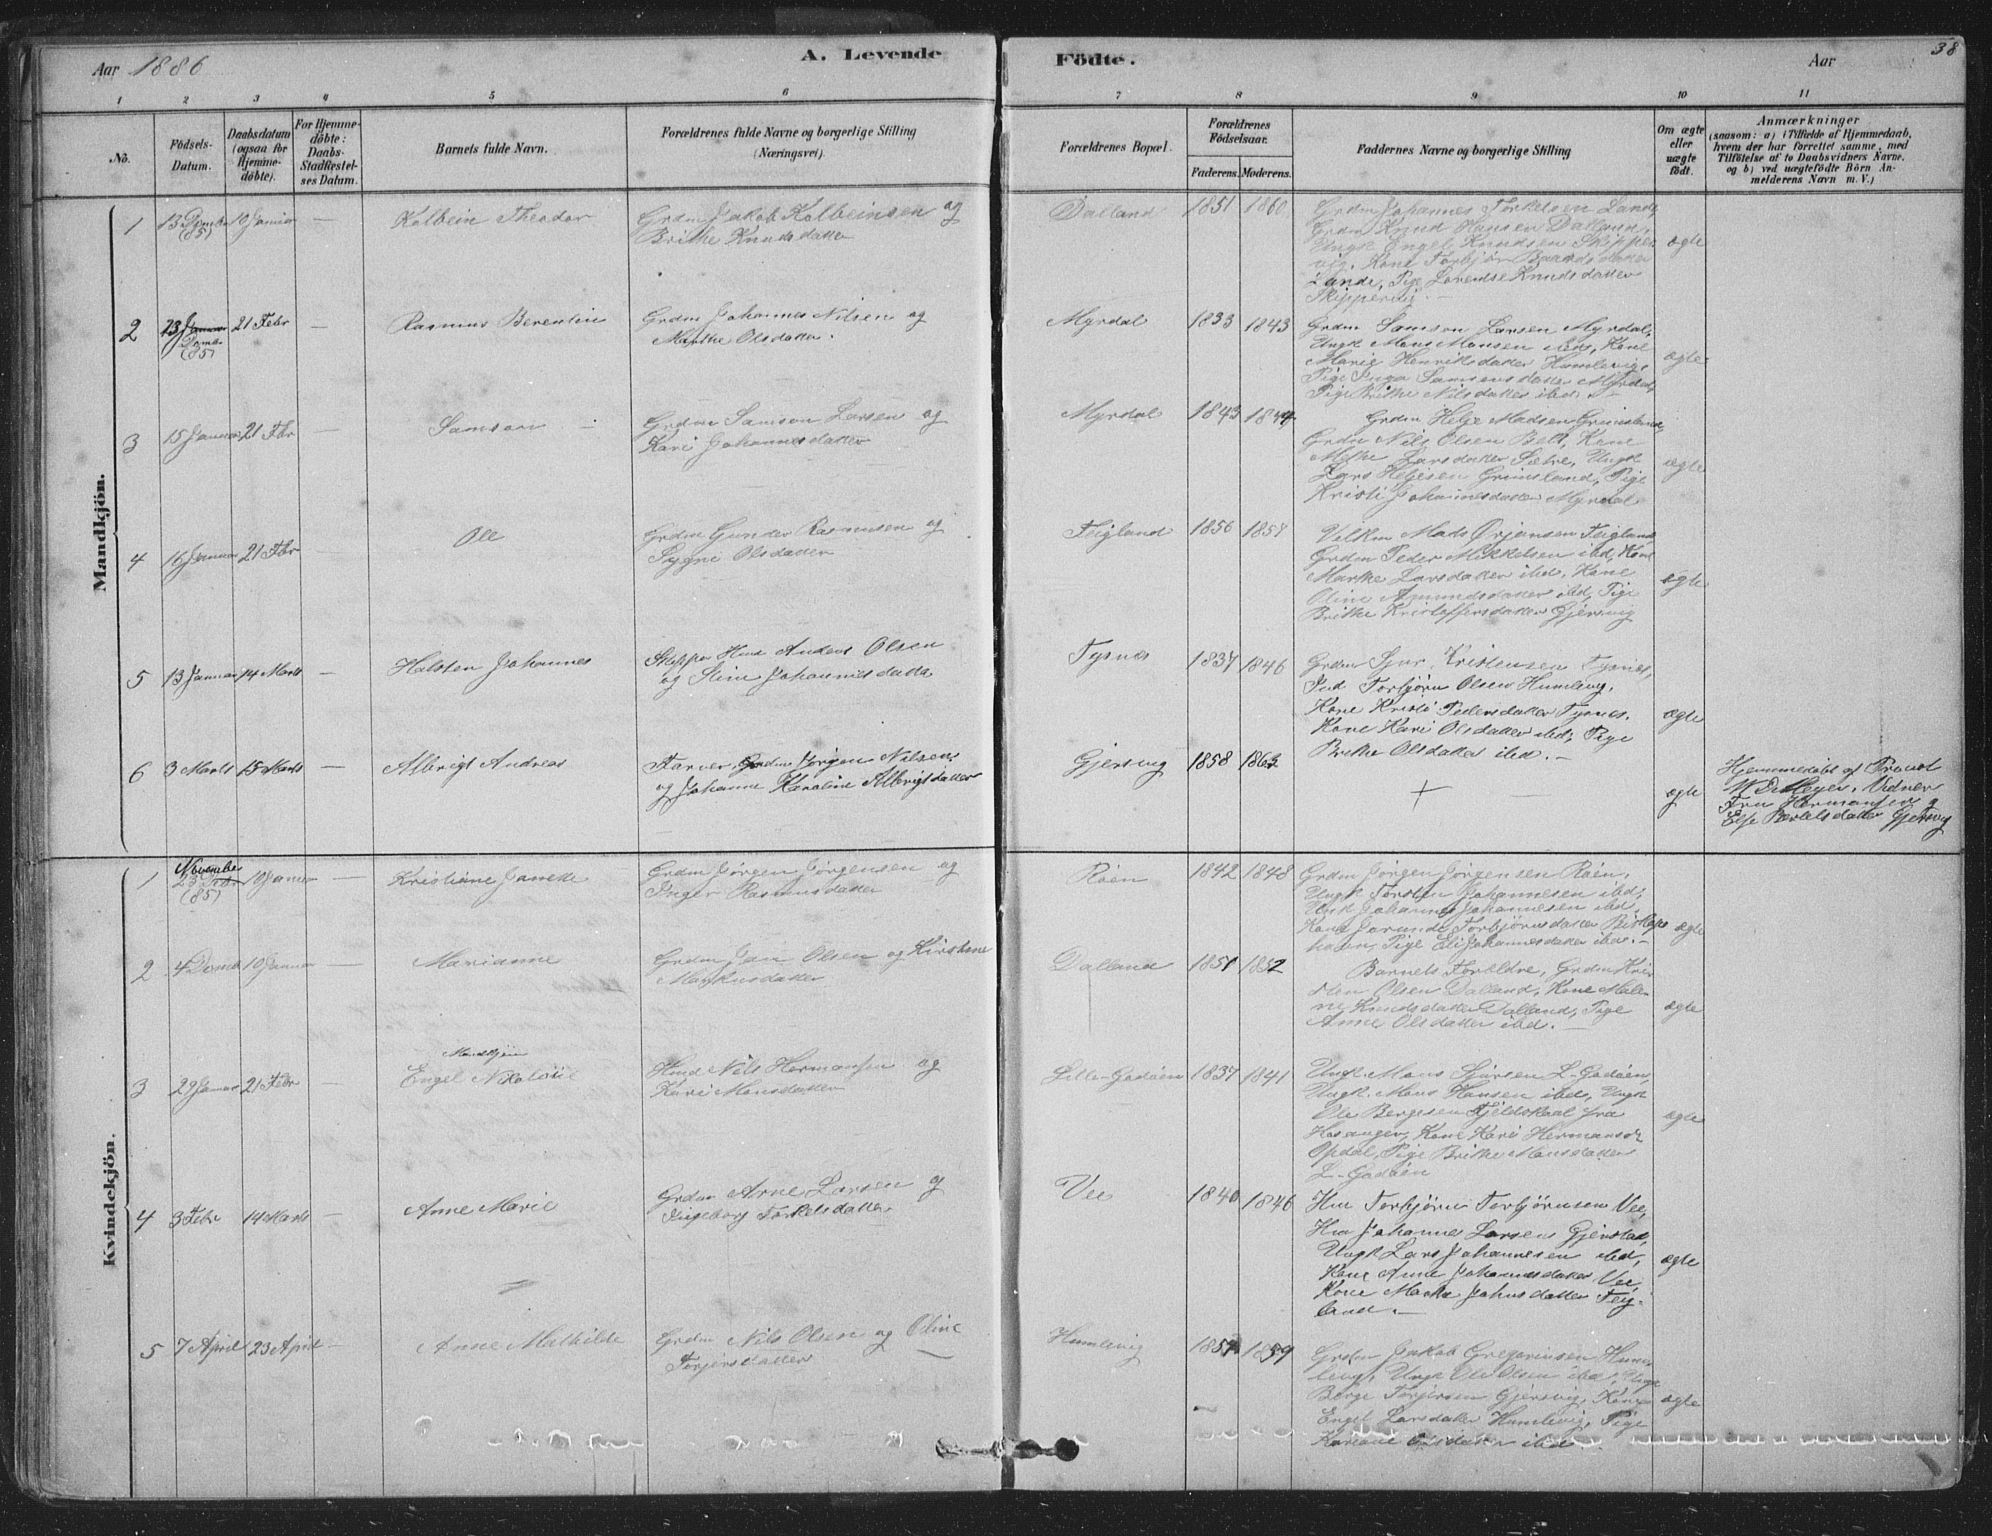 Aar 1886
A. Levende
Födte.
Aar
38
1 2 3 4 5 6 7 8 9 10 11
No.
Födsels-
Datum.
Daabsdatum
(ogsaa for
Hjemme-
döbte).
For Hjemme-
döbte:
Daabs-
Stadfæstel-
ses Datum.
Barnets fulde Navn.
Forældrenes fulde Navne og borgerlige Stilling
(Næringsvei).
Forældrenes Bopæl.
Forældrenes
Födselsaar.
Faderens. Moderens.
Faddernes Navne og borgerlige Stilling
Om ægte
eller
uægte
født.
Anmærkninger
(saasom: a) i Tilfælde af Hjemmedaab,
hvem der har forrettet samme, med
Tilföielse af to Daabsvidners Navne,
og b) ved uægtefödte Börn An-
melderens Navn m. V.)
Mandkjön.
1 13 Dcmbr (85) 10 Januar — Kolbein Theodor
Grdm Jakob Kolbeinsen og
Brithe Knudsdatter
Dalland 1851 1860
Grdm Johannes Torkelsen Lande,
Grdm Knud Hansen Dalland,
Ungk Engel Knudsen Skipper
vig, Kone Torbjør Baardsdatter
Lande, Pige Lorendse Knudsdatter
Skippervig.—
ægte
2 23 Januar Dcmbr (85) 21 Febr — Rasmus Berentin
Grdm Johannes Nilsen og
Marthe Olsdatter.
Myrdal 1833 1843
Grdm Samson Larsen Myrdal,
Ungk Mons Monsen ibd, Kone
Marie Henriksdatter Humlevig,
Pige Inga Samsonsdatter Myrdal,
Pige Brithe Nilsdatter ibd.—
ægte
3 15 Januar 21 Fbr — Samson
Grdm Samson Larsen og
Kari Johannesdatter
Myrdal 1843 1844
Grdm Helje Madsen Grimsland,
Grdm Nils Olsen Bell, Kone
Larsdatter Sætre, Ungk
Lars Heljesen Grimsland, Pige
Kristi Johannesdatter Myrdal
ægte
4 16 Januar 21 Fbr — Ole
Grdm Gunder Rasmusen og
Sygne Olsdatter
Feigland 1856 1857
Mads Ørjansen Feigland
Grdm Peder Mikkelsen ibd, Kone
Marthe Larsdatter ibd, Kone
Oline Amundsdatter ibd, Pige
Brithe Kristoffersdatter Gjersvig
ægte
5 13 Januar 14 Marts — Halsten Johannes
Skipper Hmd Anders Olsen
og Stine Johannesdatter
Tysnes 1837 1846
Grdm Sjur Kristensen Tysnes,
Ind Torbjørn Olsen Humlevig,
Kone Kristi Pedersdatter Tysnes,
Kone Kari Olsdatter ibd; Pige
Brithe Olsdatter ibd.—
ægte
6 3 Marts 15 Marts — Albrigt Andreas
Farver, Grdm Jörgen Nilsen
og Johanne Karoline Albrigtsdatter
Gjersvig 1858 1863
+
ægte
Hjemmedöbt af Provst
W D Meyer, Vidner
Fru Hermansen og
Else Bertelsdatter Gjersvig
Kvindekjön.
1 November 23 Dcbr (85) 10 Januar — Kristiane Janeke
Grdm Jørgen Jørgensen og
Inger Rasmusdatter
Røen 1842 1848
Grdm Jørgen Jørgensen Røen,
Ungk Torsten Johannesen ibd,
Ungk Johannes Johannesen ibd,
Kone Jorunde Torbjørnsdatter Biskops
havn, Pige Eli Johannesdatter ibd.—
ægte
2 4 Dcmb 10 Januar — Marianne
Grdm Jan Olsen og Kirstine
Markusdatter
Dalland 1851 1852
Barnets Forældre, Grdm Kri-
sten Olsen Dalland, Kone Male-
ne Knudsdatter Dalland, Pige
Anne Olsdatter ibd.—
ægte
3 29 Januar 21 Febr — Mandkjøn
Engel Nikolai
Hmd Nils Hermansen og
Kari Monsdatter
Lille-Godøen 1837 1841
Ungk Mons Sjursen L-Godøen,
Ungk. Mons Hansen ibd, Ungk
Ole Børgesen Fjeldskaal fra
Hosanger, Kone Kari Hermansdr
Opdal, Pige Brithe Monsdatter
L-Godøen
ægte
4 3 Febr 14 Marts — Anne Marie
Grdm Arne Larsen og
Ingeborg Torkelsdatter
Vee 1840 1846
Hm Torbjørn Torbjørnsen Vee,
Hm Johannes Larsen Gjerstad,
Ungk Lars Johannesen ibd,
Kone Anne Johannesdatter Vee,
Kone Marta Johnsdatter Feig-
land.—
ægte
5 7 April 23 April — Anne Mathilde
Grdm Nils Olsen og Oline
Torjersdatter
Humlevig 1857 1859
Grdm Jakob Gregoriusen Humle-
vig, Ungk Ole Olsen ibd, Ungk
Børge Torjersen Gjersvig, Kone
Engel Larsdatter Humlevig, Pige
Olsdatter ibd
ægte